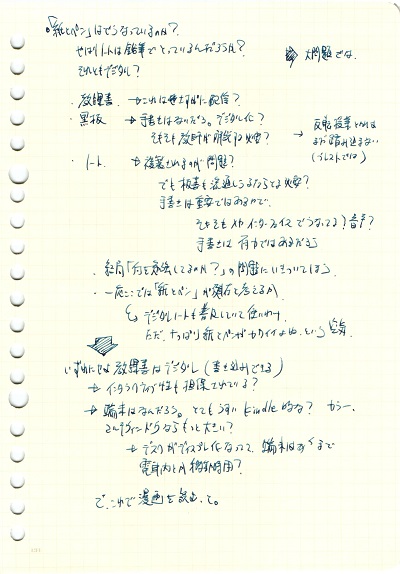 「紙とペン」はどうなっているのか？
やはりノートは鉛筆でとっているんだろうか？
それともデジタル？
⇒ 大問題でな。
・教科書 → これはやすやすに配信？
・黒板 → 手書きはないだろう。デジタル化？
そもそも教師が解説は必要？
→ 反転授業とかは
まだ踏み込まない
(イラストでは)
・ノート → 複製されるのが問題？
でも板書も流通しうるならとよ必要？
手書きは重要ではあるが、
そもそも入力インターフェイスどうなってる？音声？
手書きは有力ではあるだろう
・結局「何を勉強してるのか？」の問題にいきついてしまう
・一応ここでは「紙とペン」が現存と考えるか
デジタルノートも普及していて使いわけ
ただ、やっぱり紙とペンがカワイイよね、という空気
いずれにせよ教科書はデジタル(書き込みできる)
→ インタラクティブ性も担保されている？
→ 端末はなんだろう。とてもうすいkindle的な？カラー、
マルチウィンドウならもっと大きい？
→ デスクがディスプレイ化なって、端末はあくまで
電車内とか移動時用？
で、これで漫画を読む、と。